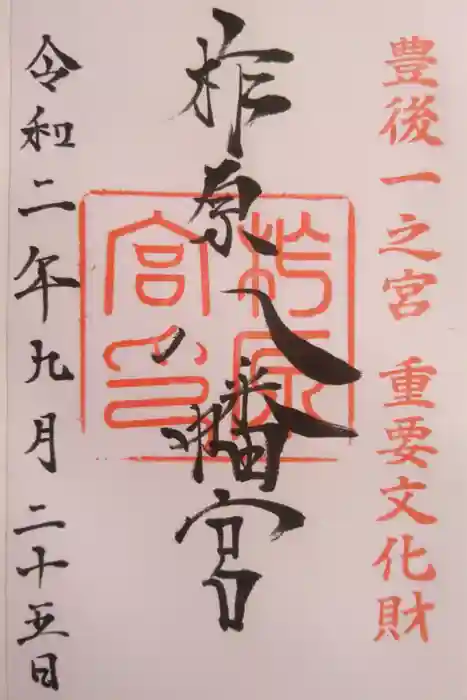 豊後一之宮 重要文化財
柞原八幡宮
柞原宮印
令和二年九月二十五日